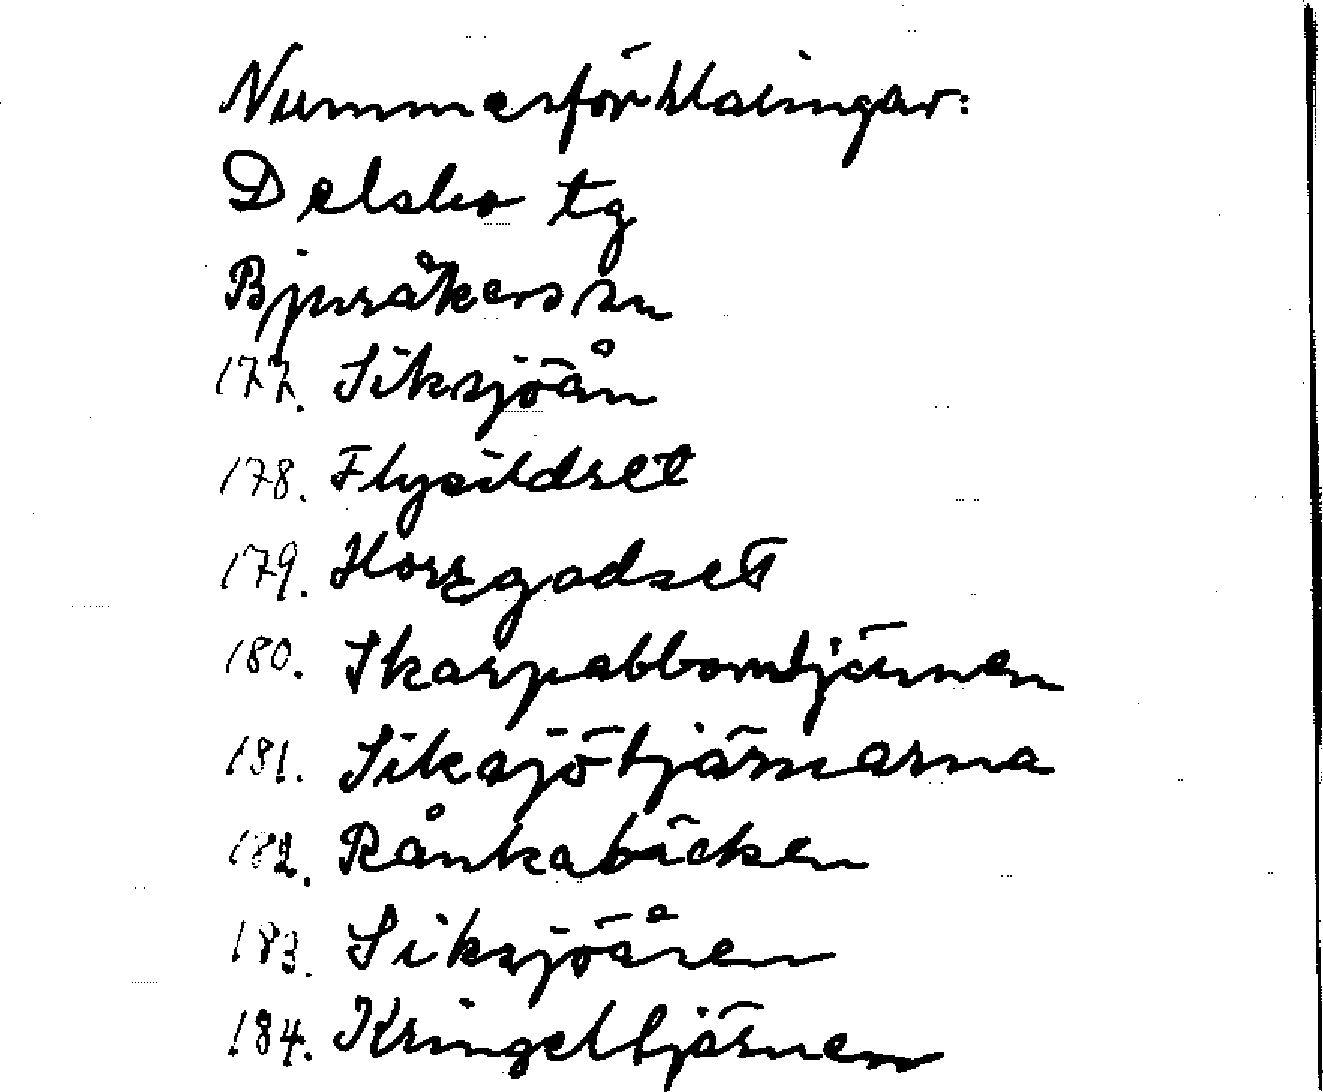 Nummerförklaringar:
Delsbo tg
Bjuråkers sn
177. Siksjöån
178. Flysildret
179. Horrgadset
180. Skarpabborrtjärnen
181. Siksjötjärnarna
182. Rånkabäcken
183. Siksjöåsen
184. Kringeltjärnen